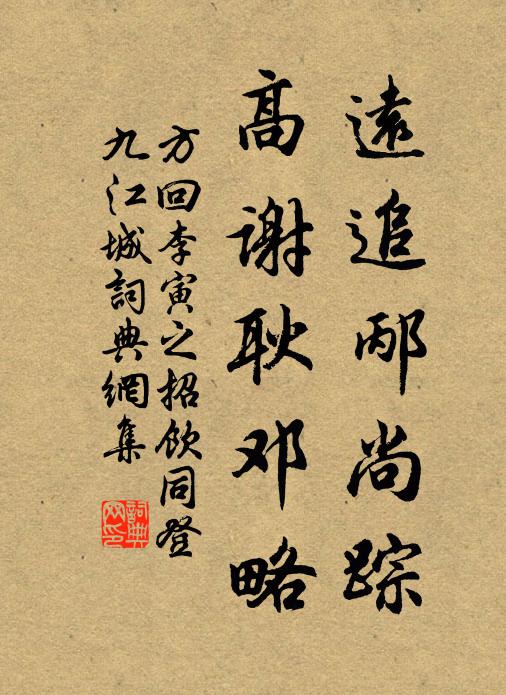 遠追邴尚踪
高谢耿邓略
方回李寅之招飲同登
九江城詞典網集
詞典
网印